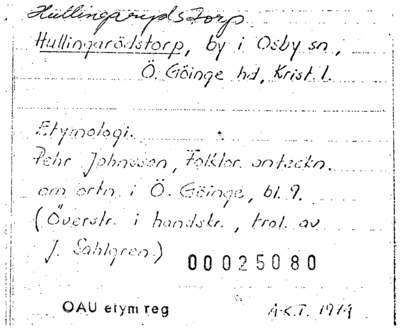 Hullingarydstorp
Hullingarödstorp, by i Osby sn,
Ö. Göinge hd, Krist. l.
Etymologi.
Pehr Johnsson, Folklor. anteckn.
om ortn. i Ö. Göinge, bl. 9.
(Överstr. i handskr., trol. av
J. Sahlgren.)
00025080
OAU etym reg
A.K.T. 1974